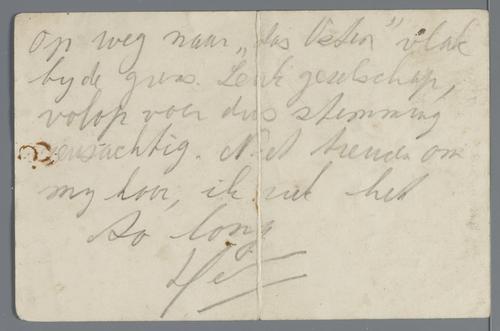 op weg naar „das Osten” vlak
by de grens. Leuk gezelschap,
volop voer dus stemming
 . Niet treuren om
my hoor, ik red het
So long